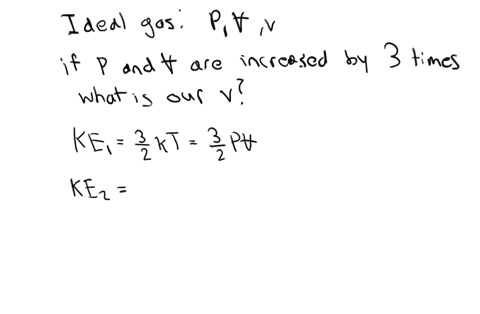 Ideal gas: P, V, v
if P and V are increased by 3 times
what is our v?
KE₁ = 3/2 kT = 3/2 PV
KE₂ =